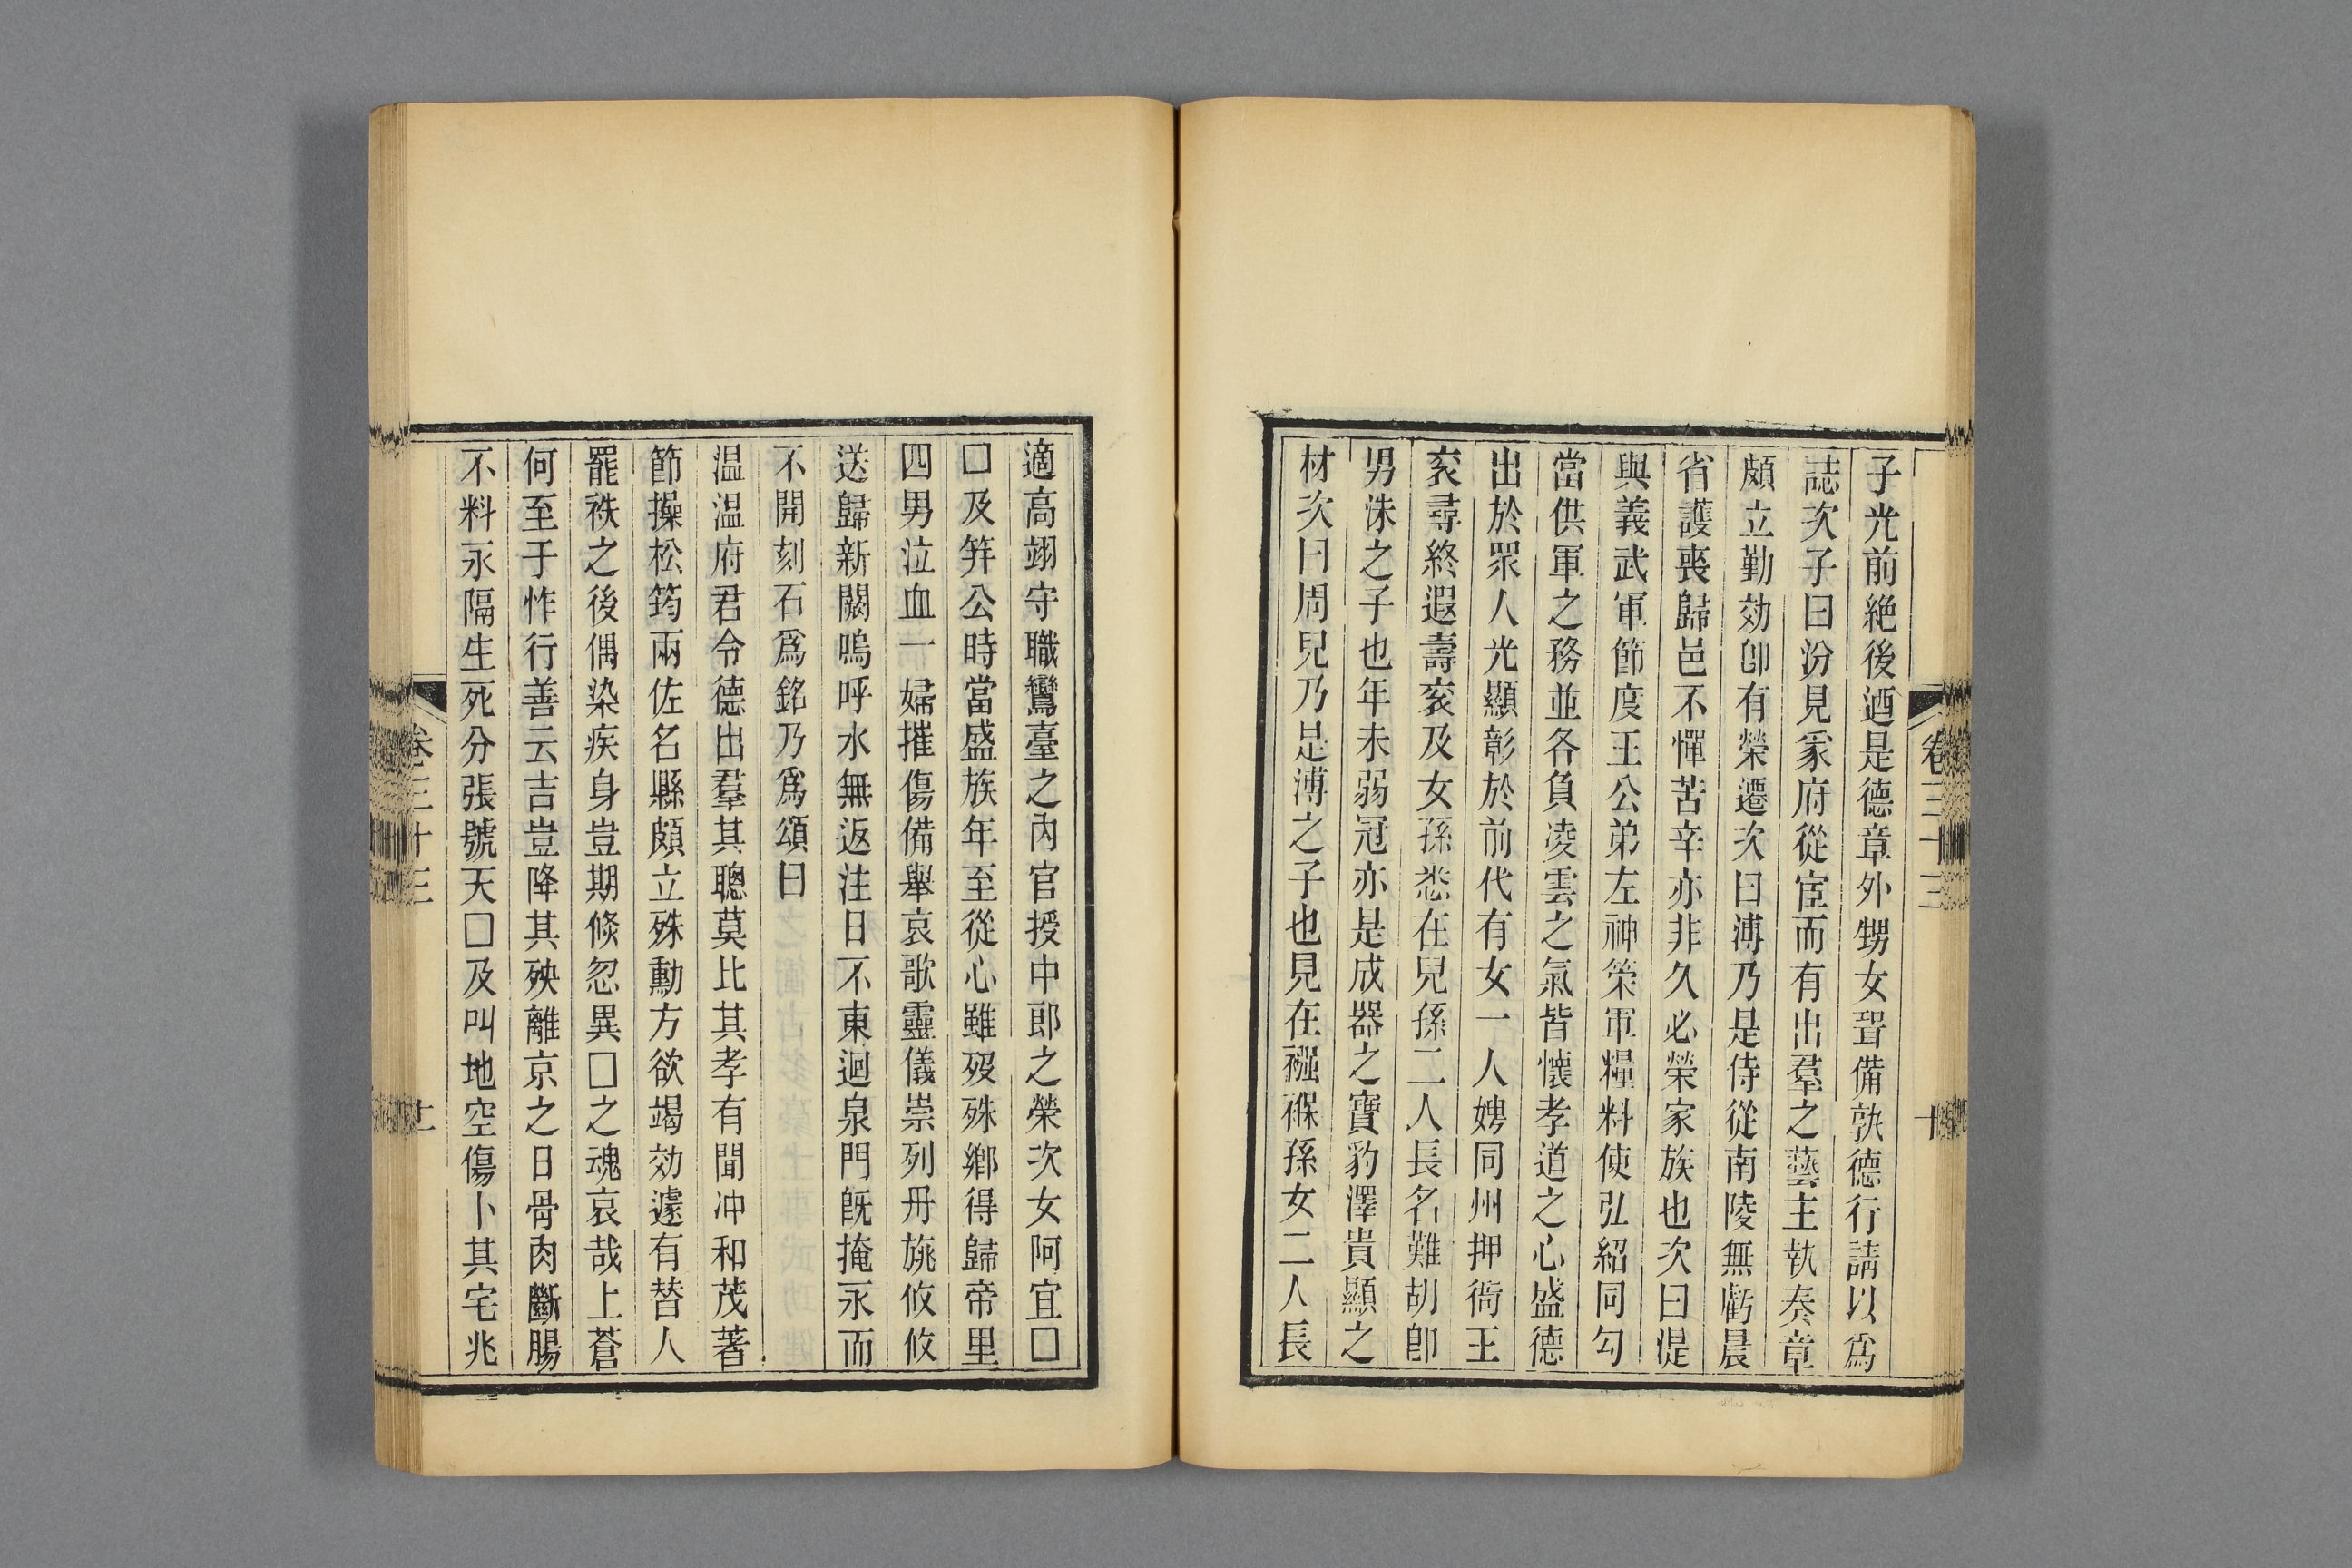 子光前絶後迺是德章外甥女聟備孰德行請以爲
誌次子曰汾見爲府從宦而有出羣之藝主執奏章
頗立勤効卽有榮遷次曰溥乃是侍從南陵無虧晨
省護喪歸邑不憚苦辛亦非久必榮家族也次曰湜
與義武軍節度王公弟左神策軍糧料使弘紹同勾
當供軍之務並各負凌雲之氣皆懷孝道之心盛德
出於眾人光顯彰於前代有女一人娉同州押衙王
衮尋終遐壽衮及女孫悉在兒孫二人長名難胡卽
男洙之子也年未弱冠亦是成器之寶豹澤貴顯之
材次曰周兒乃是溥之子也見在襁褓孫女二人長
卷三十三
十
適高翊守職鸞臺之內官授中郎之榮次女阿宜□
□及笄公時當盛族年至從心雖歿殊鄉得歸帝里
四男泣血一婦摧傷備舉哀歌靈儀崇列丹旐攸攸
送歸新闕嗚呼水無返注日不東迴泉門既掩永而
不開刻石爲銘乃爲頌曰
温温府君令德出羣其聰莫比其孝有聞冲和茂著
節操松筠兩佐名縣頗立殊勳方欲竭効遽有替人
罷秩之後偶染疾身豈期倏忽異□之魂哀哉上蒼
何至于怍行善云吉豈降其殃離京之日骨肉斷腸
不料永隔生死分張號天□及叫地空傷卜其宅兆
卷三十三
十一